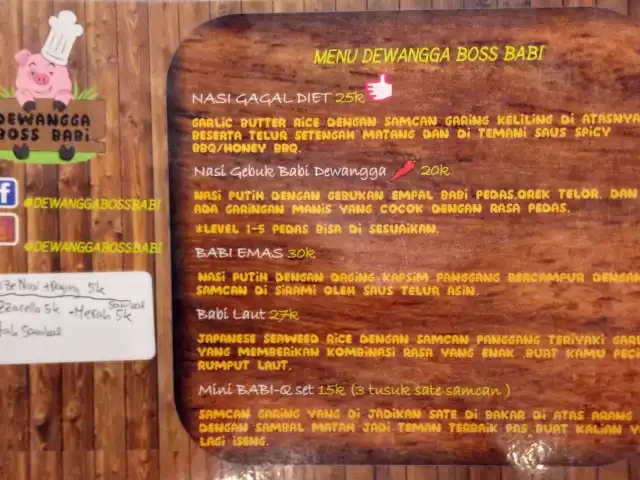 DEWANGGA
BOSS BABI
@DEWANGGABOSSBABI
@DEWANGGABOSSBABI
Nasi + Daging 5k
5k - Merah 5k
Sambal
Sambal
MENU DEWANGGA BOSS BABI
NASI GAGAL DIET 25k
GARLIC BUTTER RICE DENGAN SAMCAN GARING KELILING DI ATASNYA
BESERTA TELUR SETENGAH MATANG DAN DI TEMANI SAUS SPICY
BBQ/HONEY BBQ.
Nasi Gebuk Babi Dewangga 20k
NASI PUTIH DENGAN GEBUKAN EMPAL BABI PEDAS,OREK TELOR, DAN
ADA GARINGAN MANIS YANG COCOK DENGAN RASA PEDAS.
*LEVEL 1-5 PEDAS BISA DI SESUAIKAN.
BABI EMAS 30k
NASI PUTIH DENGAN DAGING KAPSIM PANGGANG BERCAMPUR DENGAN
SAMCAN DI SIRAMI OLEH SAUS TELUR ASIN.
Babi Laut 27k
JAPANESE SEAWEED RICE DENGAN SAMCAN PANGGANG TERIYAKI
YANG MEMBERIKAN KOMBINASI RASA YANG ENAK .BUAT KAMU
RUMPUT LAUT.
Mini BABI-Q set 15k (3 tusuk sate samcan )
SAMCAN GARING YANG DI JADIKAN SATE DI BAKAR DI ATAS ARANG
DENGAN SAMBAL MATAH JADI TEMAN TERBAIK PAS BUAT KALIAN
LAGI ISENG.